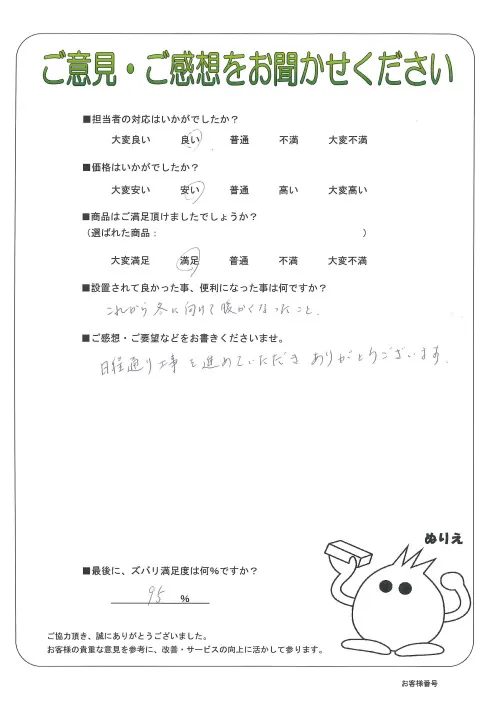 ご意見・ご感想をお聞かせください
■担当者の対応はいかがでしたか？
大変良い 良い 普通 不満 大変不満
■価格はいかがでしたか？
大変安い 安い 普通 高い 大変高い
■商品はご満足頂けましたでしょうか？
（選ばれた商品： ）
大変満足 満足 普通 不満 大変不満
■設置されて良かった事、便利になった事は何ですか？
これから冬に向けて暖かくなったこと.
■ご感想・ご要望などをお書きくださいませ。
日程通り工事を進めていただきありがとうございます.
ぬりえ
■最後に、ズバリ満足度は何％ですか？
95 ％
ご協力頂き、誠にありがとうございました。
お客様の貴重な意見を参考に、改善・サービスの向上に活かして参ります。
お客様番号